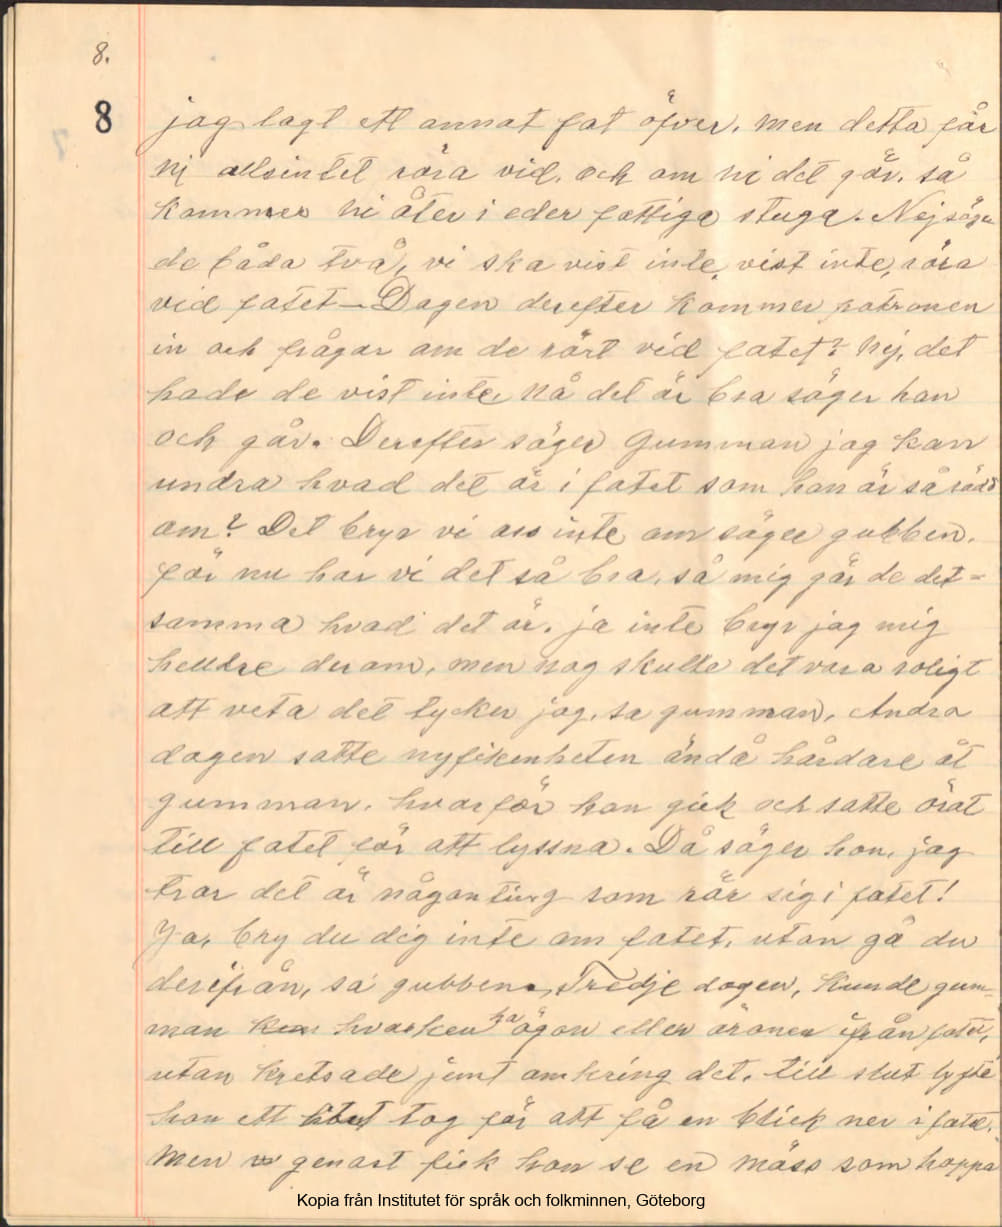 8.
8
jag lagt ett annat fat öfver. men detta får
ni allsintet röra vid. och om ni det gör. så
kommer ni åter i eder fattiga stuga. Nej säger
de båda två, vi ska vist inte, vist inte, röra
vid fatet – Dagen derefter kommer patronen
in och frågar om de rört vid fatet? Nej, det
hade de vist inte. Nå det är bra säger han
och går. Derefter säger Gumman jag kan
undra hvad det är i fatet som han är så rädd
om? Det bryr vi oss inte om säger gubben.
för nu har vi det så bra. så mig gör de det=
samma hvad det är. ja inte bryr jag mig
helldre derom, men nog skulle det vara roligt
att veta det tycker jag. sa gumman. Andra
dagen satte nyfikenheten ändå hårdare åt
gumman. hvarför hon gick och satte örat
till fatet för att lyssna. Då säger hon. jag
tror det är någonting som rör sig i fatet!
Ja, bry du dig inte om fatet. utan gå du
derifrån, sa gubben. Tredje dagen, kunde gum-
man hvarken ha ögon eller öronen ifrån fatet,
utan kretsade jemt omkring det. till slut lyfte
hon ett litet tag för att få en blick ner i fatet.
Men genast fick hon se en möss som hoppa
Kopia från Institutet för språk och folkminnen, Göteborg